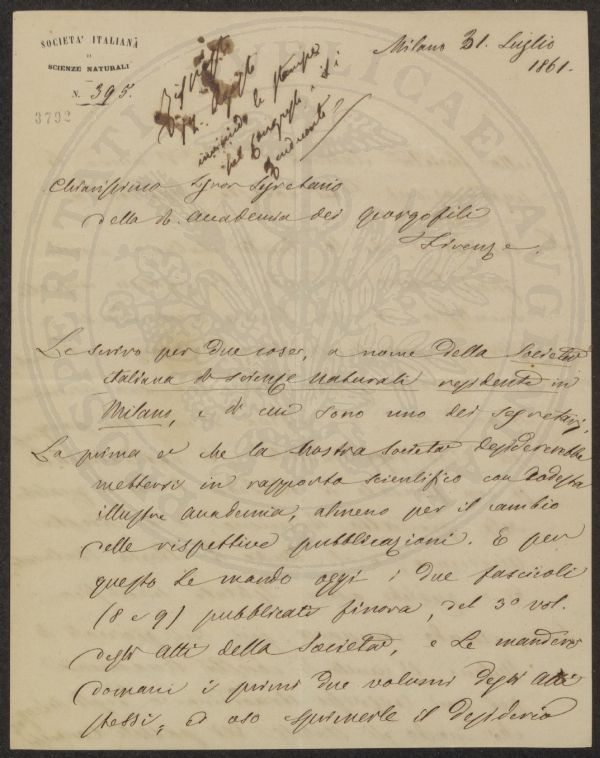 SOCIETA' ITALIANA
DI
SCIENZE NATURALI
N. 395.
3792
Milano 31. Luglio
1861.
Risposto
Agosto
inviando le stampe
Chiarissimo Signor Segretario
della R. Accademia dei Georgofili
Firenze.
Le scrivo per due cose, a nome della Società
italiana di scienze naturali residente in
Milano, e di cui sono uno dei segretarj.
La prima è che la nostra Società desidererebbe
mettersi in rapporto scientifico con codesta
illustre Accademia, almeno per il cambio
delle rispettive pubblicazioni. E per
questo Le mando oggi i due fascicoli
(8 e 9) pubblicati finora, del 3° vol.
degli Atti della Società, e Le manderò
domani i primi due volumi degli Atti
stessi, ed oso esprimerle il desiderio